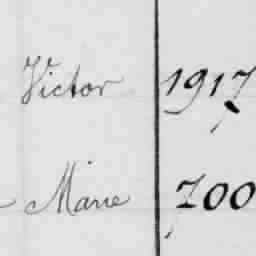 Victor 1917
Marie 700